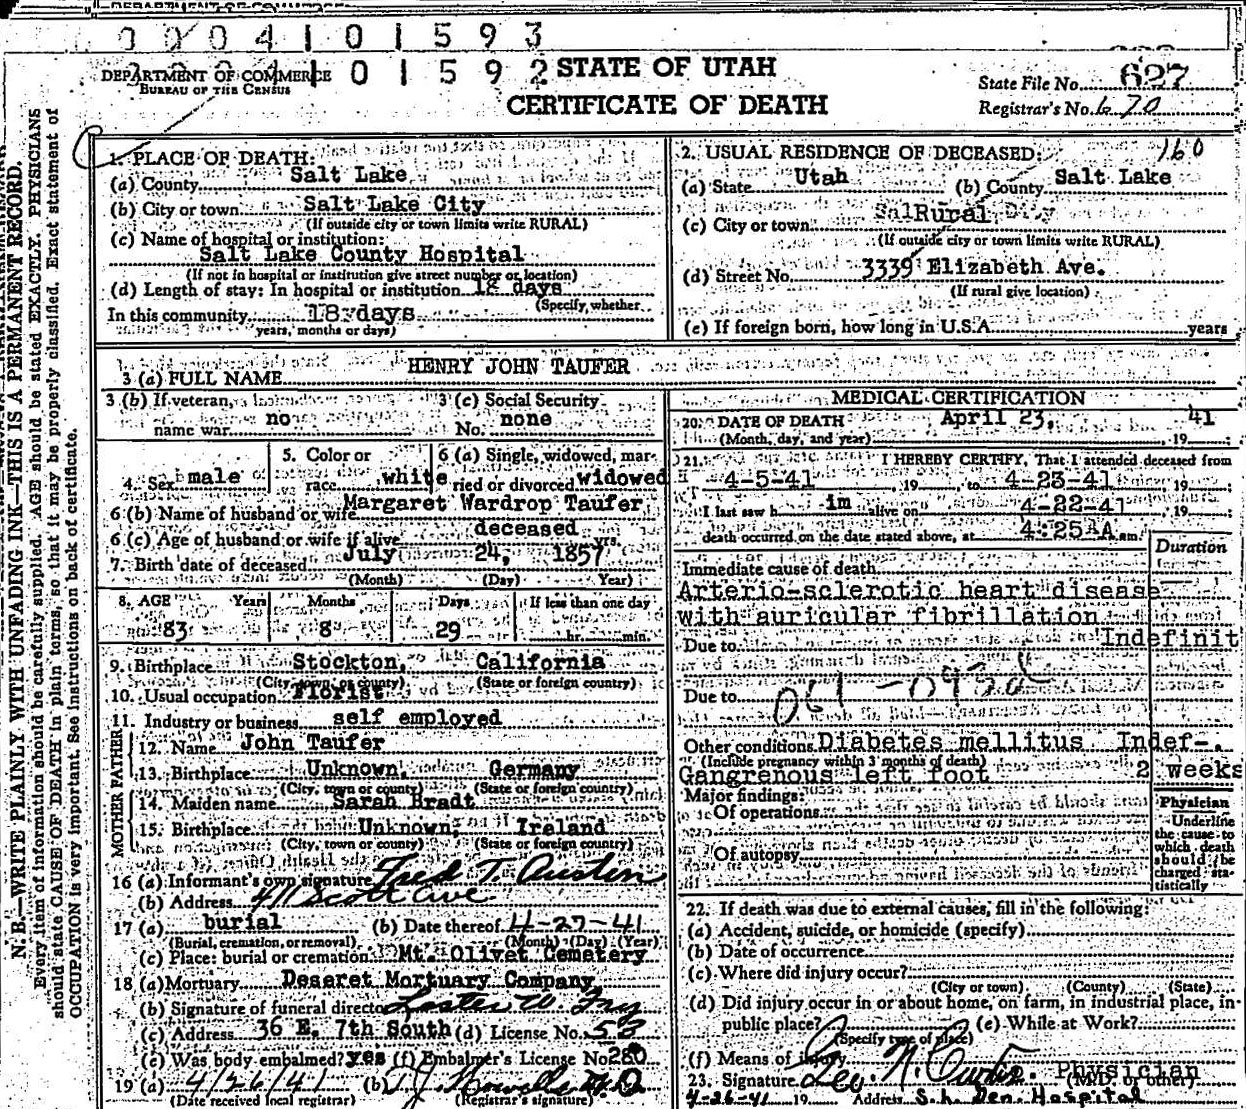 0004101593
0004101592
DEPARTMENT OF COMMERCE
BUREAU OF THE CENSUS
STATE OF UTAH
CERTIFICATE OF DEATH
State File No. 627
Registrar's No. 670
N. B.—WRITE PLAINLY WITH UNFADING INK—THIS IS A PERMANENT RECORD.
Every item of information should be carefully supplied. AGE should be stated EXACTLY. PHYSICIANS
should state CAUSE OF DEATH in plain terms, so that it may be properly classified. Exact statement of
OCCUPATION is very important. See instructions on back of certificate.
1. PLACE OF DEATH:
(a) County Salt Lake
(b) City or town Salt Lake City
(If outside city or town limits write RURAL)
(c) Name of hospital or institution:
Salt Lake County Hospital
(If not in hospital or institution give street number or location)
(d) Length of stay: In hospital or institution 18 days
(Specify whether
In this community 18 days
years, months or days)
2. USUAL RESIDENCE OF DECEASED: 160
(a) State Utah (b) County Salt Lake
(c) City or town Rural
(If outside city or town limits write RURAL)
(d) Street No. 3339 Elizabeth Ave.
(If rural give location)
(e) If foreign born, how long in U.S.A. years
3 (a) FULL NAME HENRY JOHN TAUFER
3 (b) If veteran,
name war no
3 (c) Social Security
No. none
4. Sex male
5. Color or
race white
6 (a) Single, widowed, mar-
ried or divorced widowed
6 (b) Name of husband or wife Margaret Wardrop Taufer
6 (c) Age of husband or wife if alive deceased yrs.
7. Birth date of deceased July 24, 1857
(Month) (Day) (Year)
8. AGE Years Months Days If less than one day
83 8 29 hr. min.
9. Birthplace Stockton, California
(City, town or county) (State or foreign country)
10. Usual occupation Florist
11. Industry or business self employed
FATHER
12. Name John Taufer
13. Birthplace Unknown, Germany
(City, town or county) (State or foreign country)
MOTHER
14. Maiden name Sarah Bradt
15. Birthplace Unknown, Ireland
(City, town or county) (State or foreign country)
16 (a) Informant's own signature Fred T. Austin
(b) Address 411 Scott Ave
17 (a) burial (b) Date thereof 4-27-41
(Burial, cremation, or removal) (Month) (Day) (Year)
(c) Place: burial or cremation Mt. Olivet Cemetery
18 (a) Mortuary Deseret Mortuary Company
(b) Signature of funeral director Lester W. Fry
(c) Address 36 E. 7th South (d) License No. 58
(e) Was body embalmed? yes (f) Embalmer's License No. 280
19 (a) 4/26/41 (b)
(Date received local registrar) (Registrar's signature)
MEDICAL CERTIFICATION
20. DATE OF DEATH April 23, 41
(Month, day, and year) , 19 ;
21. I HEREBY CERTIFY, That I attended deceased from
4-5-41 , 19 , to 4-23-41 , 19 ;
I last saw h im alive on 4-22-41 , 19 ;
death occurred on the date stated above, at 4:25 A m.
Duration
Immediate cause of death
Arterio-sclerotic heart disease
with auricular fibrillation
Due to Indefinit
Due to
Other conditions Diabetes mellitus Indef-.
(Include pregnancy within 3 months of death)
Gangrenous left foot 2 weeks
Major findings:
Of operations
Of autopsy
Physician
Underline
the cause to
which death
should be
charged sta-
tistically
22. If death was due to external causes, fill in the following:
(a) Accident, suicide, or homicide (specify)
(b) Date of occurrence
(c) Where did injury occur?
(City or town) (County) (State)
(d) Did injury occur in or about home, on farm, in industrial place, in
public place? (e) While at Work?
(Specify type of place)
(f) Means of injury
23. Signature Physician
(M.D. or other)
4-26-41 19 Address S. L. Gen. Hospital